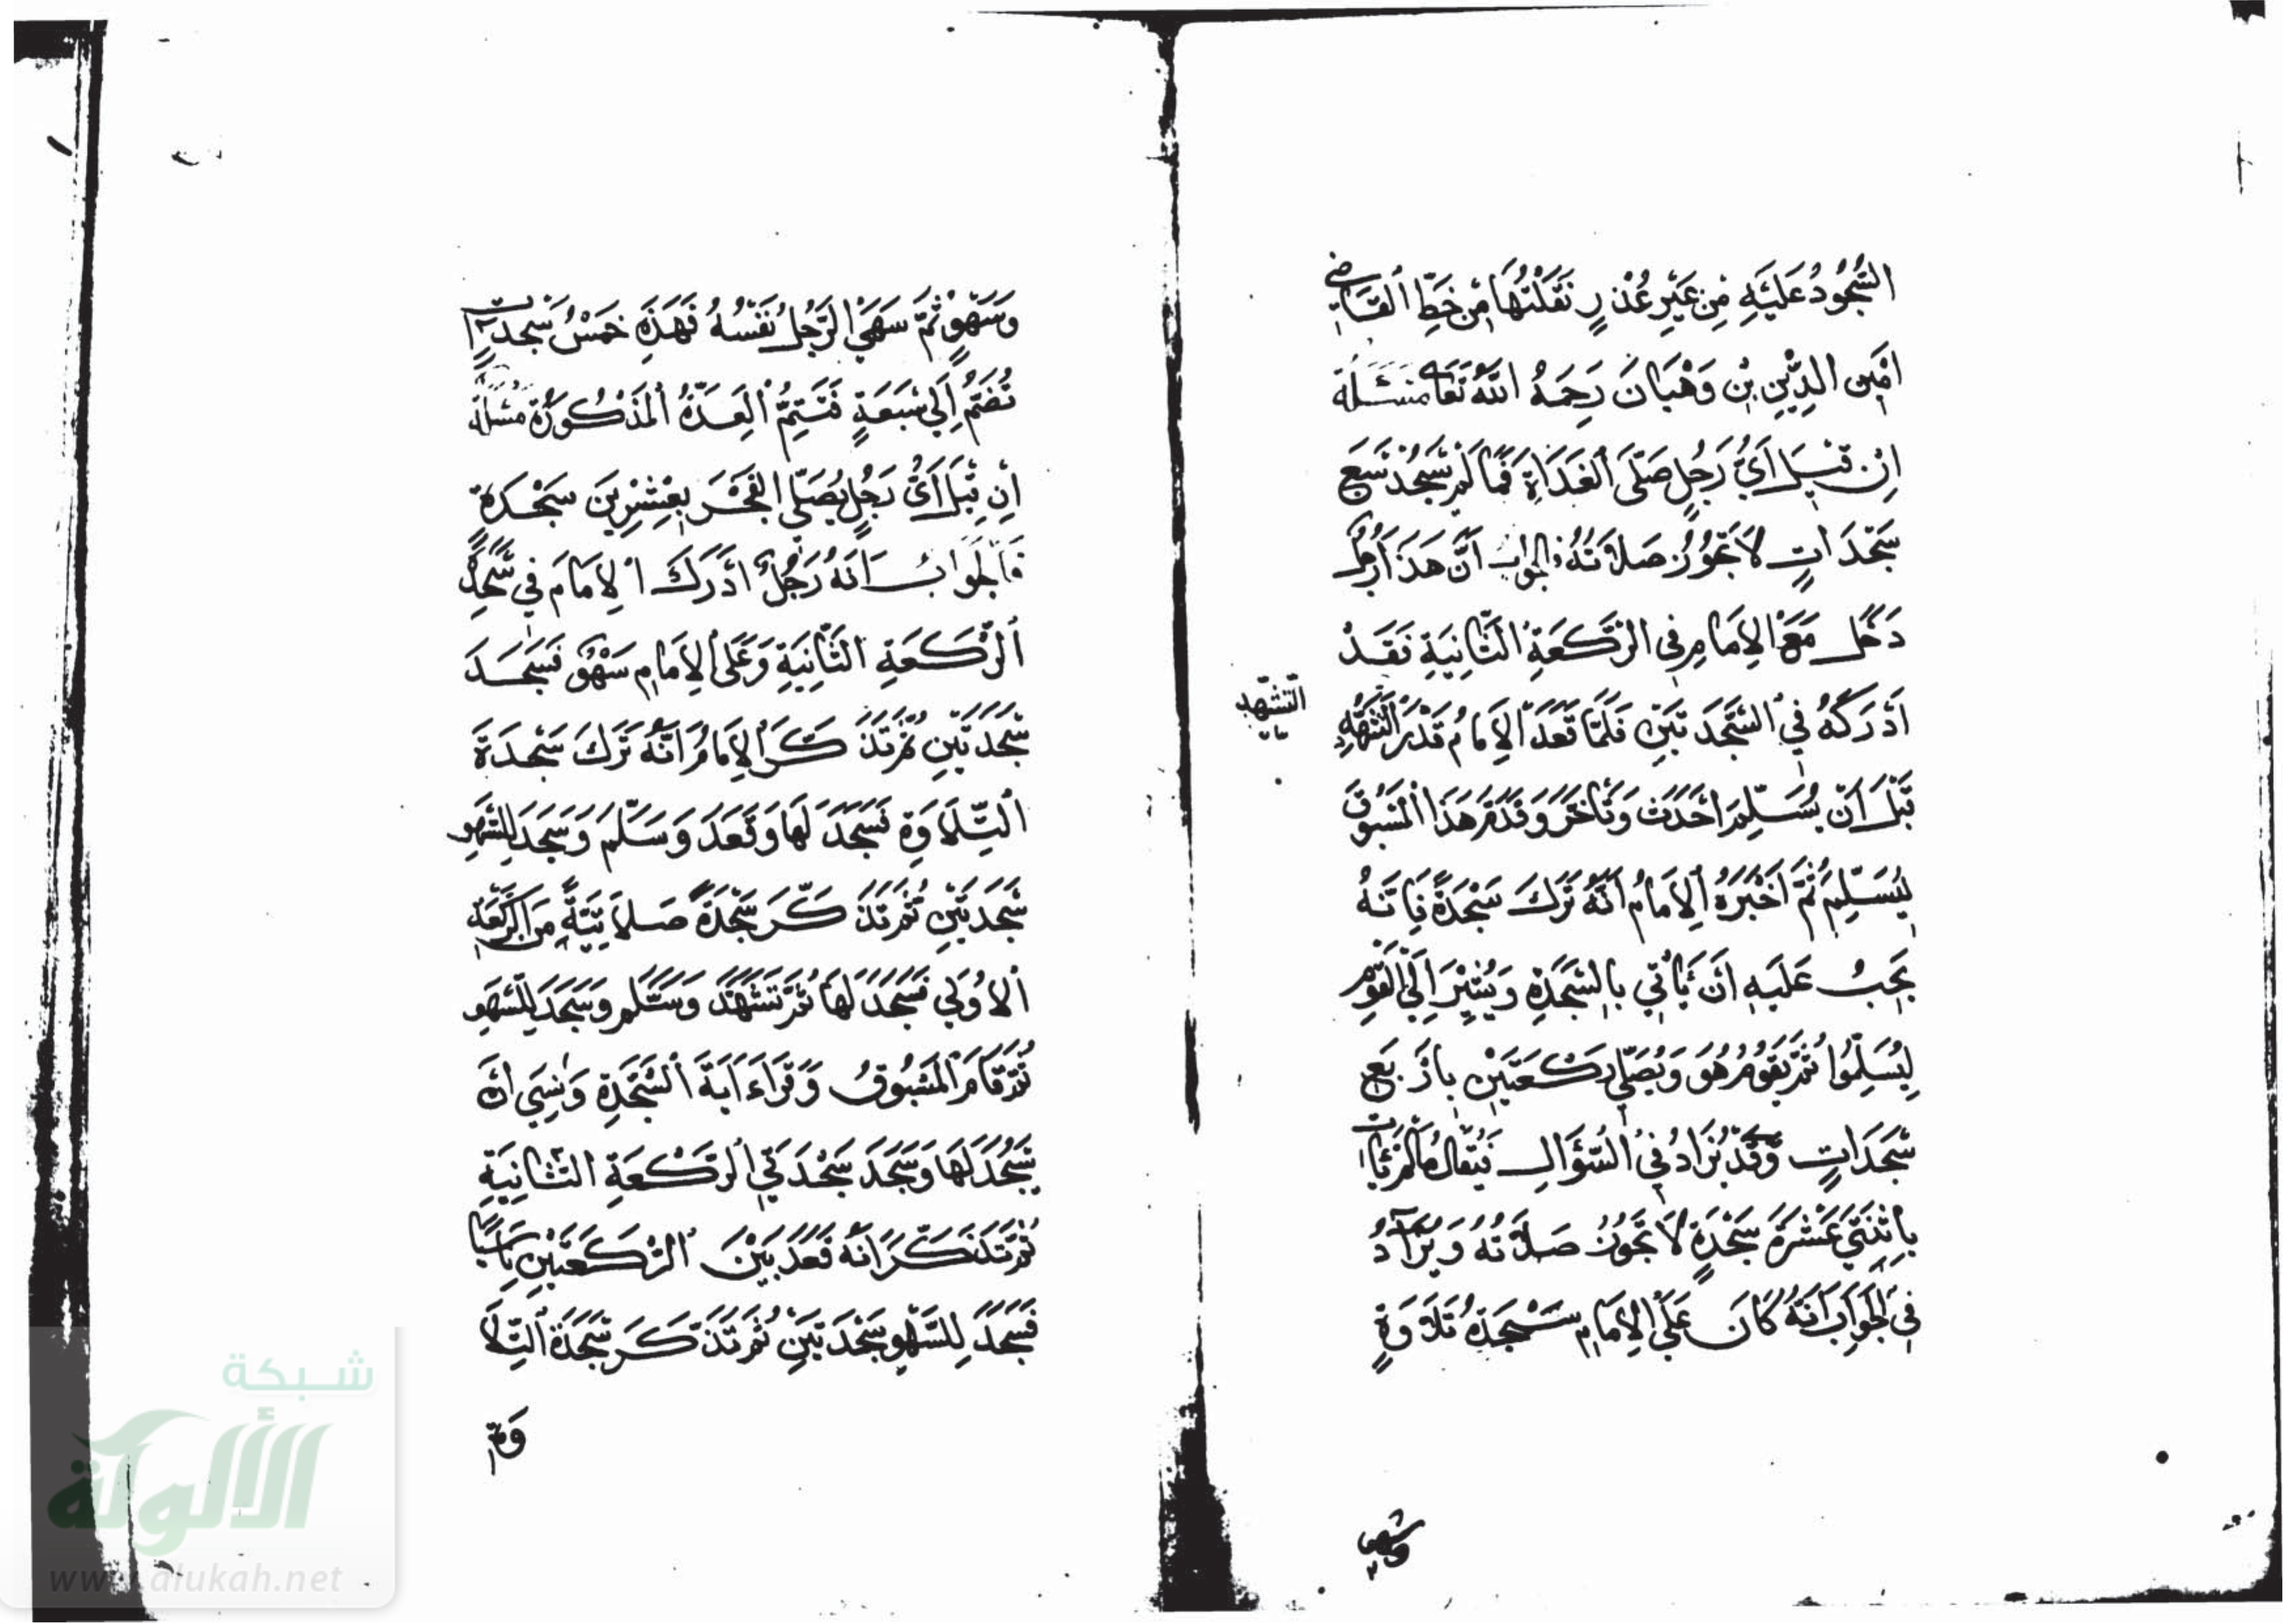 السُّجُودُ عَلَيْهِ مِن غَيْرِ عُذْرٍ نَقَلْتُهَا مِن خَطِّ القَاضِي
امِين الدِّينِ بْنِ وَهْبَانَ رَحِمَهُ اللَّهُ تَعَا مَسْئَلَة
اِنْ قِيْلَ اَيُّ رَجُلٍ صَلَّى الغَدَاةَ فَمَا لَمْ يَسْجُدْ تِسْعَ
سَجْدَاتٍ لَا تَجُوزُ صَلَاتُهُ فالجواب اَنَّ هَذَا رَجُل
دَخَلَ مَعَ الاِمَامِ فِي الرَّكْعَةِ الثَّانِيَةِ فَقَدْ
اَدْرَكَهُ فِي السَّجْدَتَيْنِ فَلَمَّا قَعَدَ الاِمَامُ قَدْرَ التَّشَهُّدِ
التشهد
قَبْلَ اَنْ يُسَلِّمَ اَحْدَثَ وَتَأَخَّرَ وَقَدَّمَ هَذَا المَسْبُوقَ
لِيُسَلِّمَ ثُمَّ اَخْبَرَهُ الاِمَامُ اَنَّهُ تَرَكَ سَجْدَةً فَاِنَّهُ
يَجِبُ عَلَيْهِ اَنْ يَأْتِي بِالسَّجْدَةِ وَيُشِيْرَ اِلَى القَوْمِ
لِيُسَلِّمُوا ثُمَّ يَقُومُ هُوَ وَيُصَلِّي رَكْعَتَيْنِ بِاَرْبَعِ
سَجَدَاتٍ وَقَدْ يُزَادُ فِي السُّؤَالِ فَيُقَالُ مَا لَمْ يَأْتِ
بِاثْنَتَيْ عَشْرَةَ سَجْدَةٍ لَا تَجُوزُ صَلَاتُهُ وَيُزَادُ
فِي الجَوَابِ اَنَّهُ كَانَ عَلَى الاِمَامِ سَجْدَةُ تِلَاوَةٍ
وسهو
وَسَهْوٍ ثُمَّ سَهَى الرَّجُلُ نَفْسُهُ فَهَذِهِ خَمْسُ سَجْدَاتٍ
تُضَمُّ اِلَى سَبْعَةٍ فَتَتِمُّ العِدَّةُ المَذْكُورَةُ مسئلة
اِنْ قِيْلَ اَيُّ رَجُلٍ يُصَلِّي الفَجْرَ بِعِشْرِينَ سَجْدَةً
فَالجَوَابُ اَنَّهُ رَجُلٌ اَدْرَكَ الاِمَامَ فِي سَجْدَةِ
الرَّكْعَةِ الثَّانِيَةِ وَعَلَى الاِمَامِ سَهْوٌ فَسَجَدَ
سَجْدَتَيْنِ ثُمَّ تَذَكَّرَ الاِمَامُ اَنَّهُ تَرَكَ سَجْدَةَ
التِّلَاوَةِ فَسَجَدَ لَهَا وَقَعَدَ وَسَلَّمَ وَسَجَدَ لِلسَّهْوِ
سَجْدَتَيْنِ ثُمَّ تَذَكَّرَ سَجْدَةً صَلَاتِيَّةً مِنَ الرَّكْعَةِ
الاُوْلَى فَسَجَدَ لَهَا ثُمَّ تَشَهَّدَ وَسَلَّمَ وَسَجَدَ لِلسَّهْوِ
ثُمَّ قَامَ المَسْبُوقُ وَقَرَاءَ اَيَةَ السَّجْدَةِ وَنَسِيَ اَنْ
يَسْجُدَ لَهَا وَسَجَدَ سَجْدَتَي الرَّكْعَةِ الثَّانِيَةِ
ثُمَّ تَذَكَّرَ اَنَّهُ قَعَدَ بَيْنَ الرَّكْعَتَيْنِ نَاسِيًا
فَسَجَدَ لِلسَّهْوِ سَجْدَتَيْنِ ثُمَّ تَذَكَّرَ سَجْدَةَ التِّلَا
وَةِ
شبكة
الألوكة
www.alukah.net